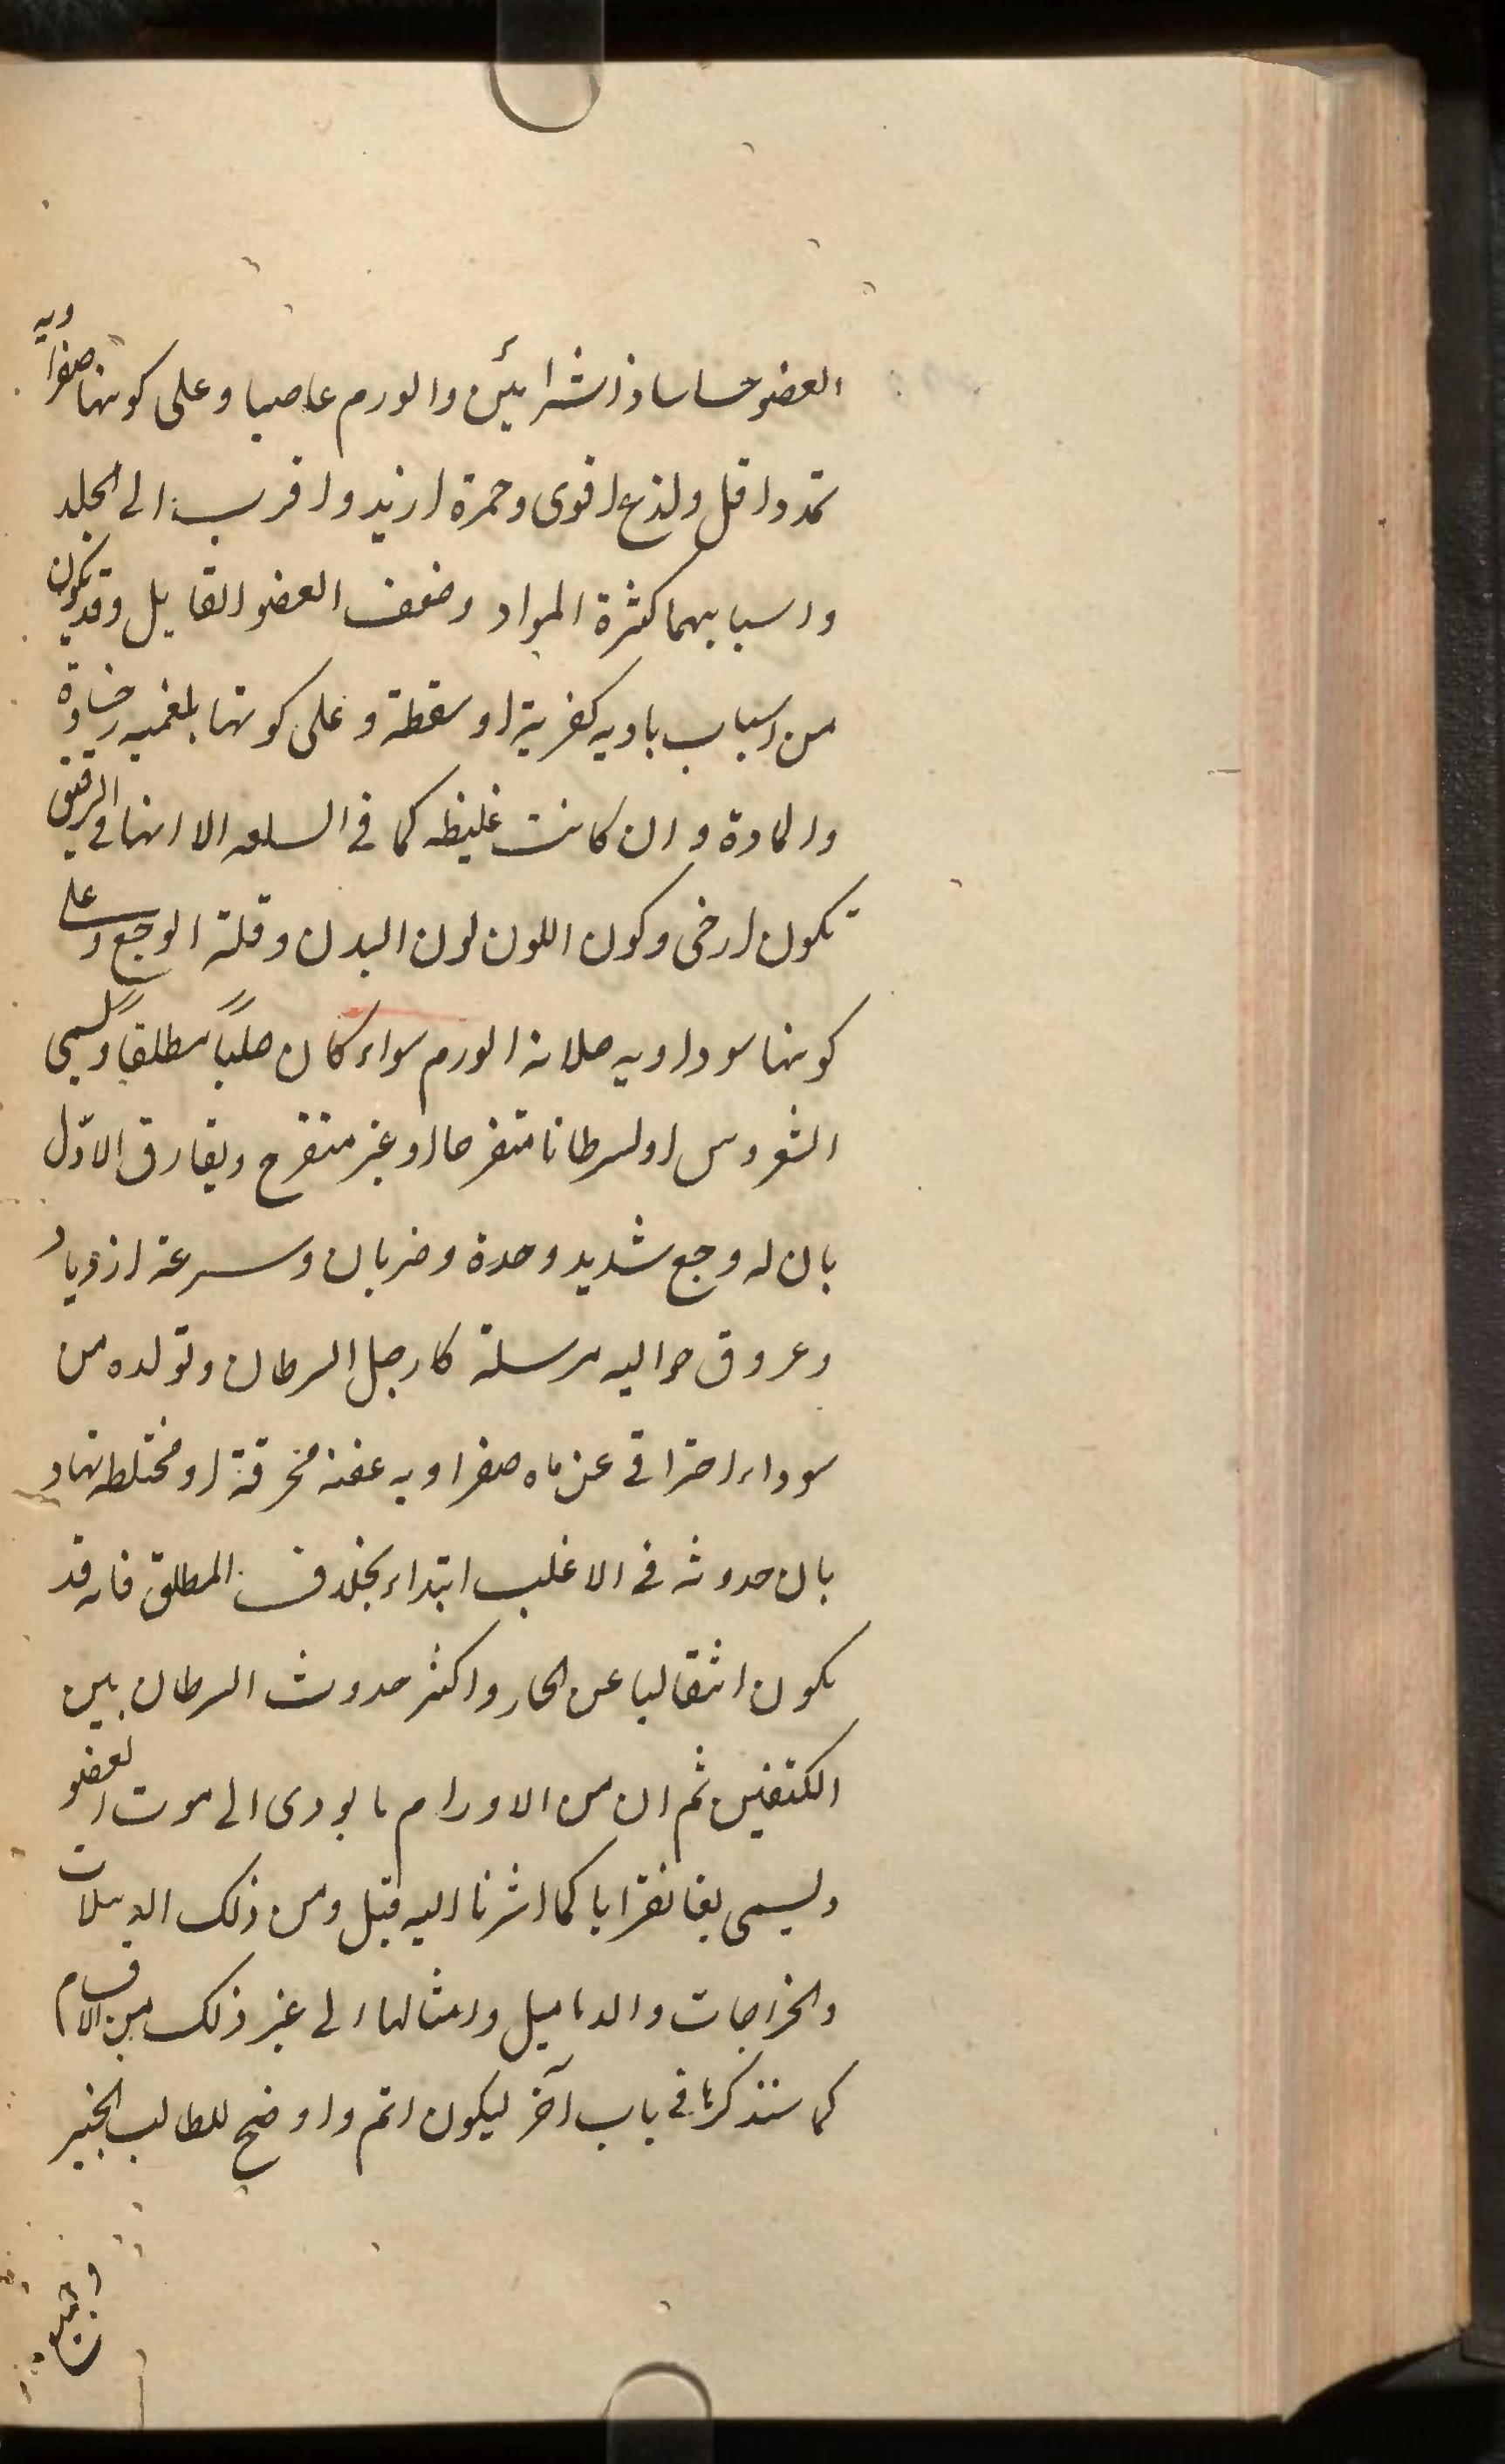 العضو حساسا ذا شرائين والورم عاصيا وعلى كونها صفراويه
تمدد اقل ولذع اقوى وحمرة ازيد واقرب الى الجلد
واسبابهما كثرة المواد وضعف العضو القابل وقد يكون
من اسباب باديه كضربة او سقطة وعلى كونها بلغميه رخاوة
والمادة وان كانت غليظه كما فى السلعه الا انها فى الرقيق
تكون ارخى وكون اللون لون البدن وقلة الوجع وعلى
كونها سوداويه صلابة الورم سواء كان صلبًا مطلقًا ويسمى
او سرطانا متقرحا او غير متقرح ويفارق الاوّل
بان له وجع شديد وحدة وضربان وسرعة ازدياد
وعروق حواليه مرسلة كارجل السرطان وتولده من
سوداء احتراقى عن ماده صفراويه عفنة محرقة او مختلطه بها و
بان حدوثه فى الاغلب ابتداء بخلاف المطلق فانه قد
يكون انتقاليا عن الحار واكثر حدوث السرطان بين
الكتفين ثم ان من الاورام ما يودى الى موت العضو
ويسمى بغانغرايا كما اشرنا اليه قبل ومن ذلك الدبيلات
والخراجات والدماميل وامثالها الى غير ذلك من الاقسام
كما سنذكرها فى باب آخر ليكون اتم واوضح للطالب الخبير